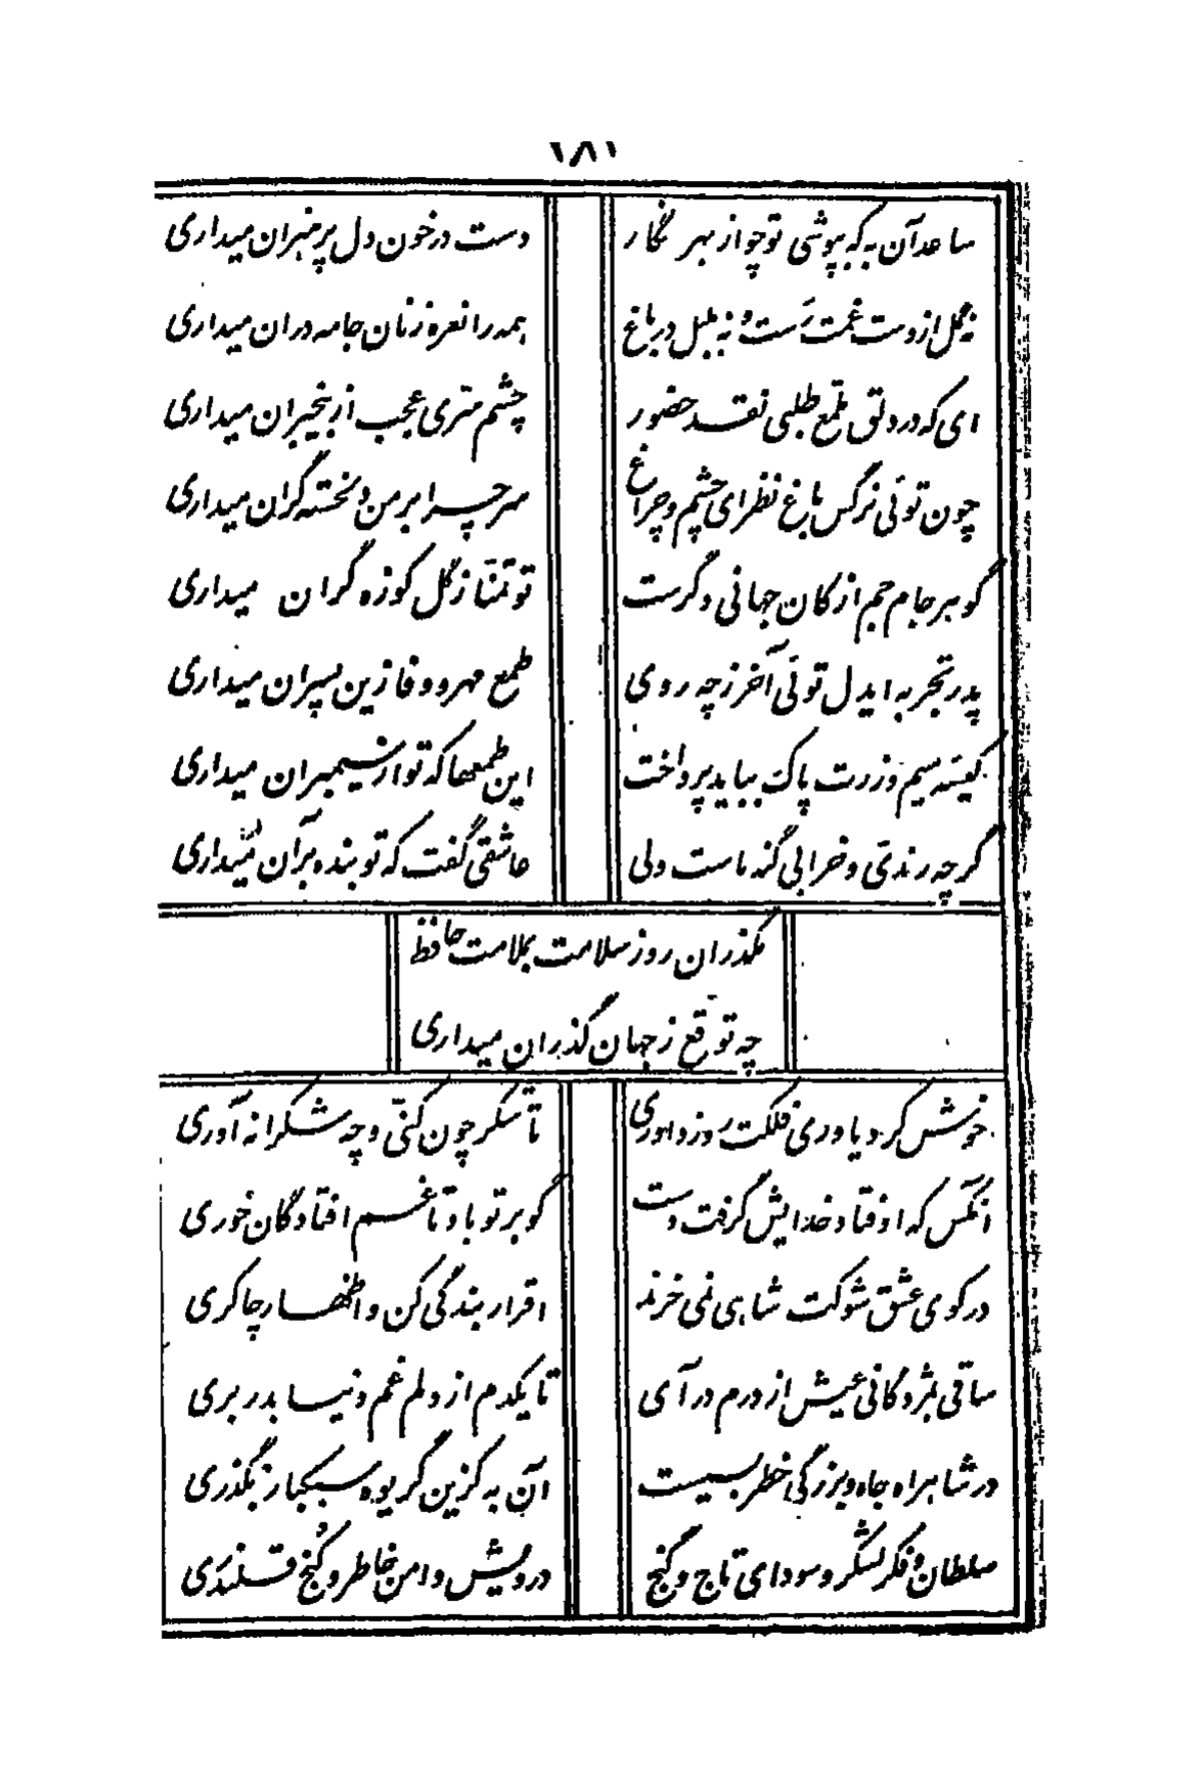 ۱۸۱
ساعد آن به که بپوشی تو چو از بهر نگار
دست در خون دل پر هنران میداری
نه گل از دست غمت رست و نه بلبل در باغ
همه را نعره زنان جامه دران میداری
ای که در دلق ملمع طلبی نقد حضور
چشم سری عجب از بیخبران میداری
چون توئی نرگس باغ نظر ای چشم و چراغ
سر چرا بر من دلخسته گران میداری
گوهر جام جم از کان جهانی دگرست
تو تمنا ز گل کوزه گران میداری
پدر تجربه ایدل توئی آخر ز چه روی
طمع مهر و وفا زین پسران میداری
کیسه سیم و زرت پاک بباید پرداخت
این طمعها که تو از سیمبران میداری
گرچه رندی و خرابی گنه ماست ولی
عاشقی گفت که تو بنده بر آن میداری
مگذران روز سلامت بملامت حافظ
چه توقع ز جهان گذران میداری
خوش کرد یاوری فلکت روز داوری
تا شکر چون کنی و چه شکرانه آوری
آنکس که اوفتاد خدایش گرفت دست
گو بر تو باد تا غم افتادگان خوری
در کوی عشق شوکت شاهی نمی خرند
اقرار بندگی کن و اظهار چاکری
ساقی بمژدگانی عیش از درم در آی
تا یکدم از دلم غم دنیا بدر بری
در شاهراه جاه و بزرگی خطر بسیست
آن به کزین گریوه سبکبار بگذری
سلطان و فکر لشگر و سودای تاج و گنج
درویش و امن خاطر و کنج قلندری